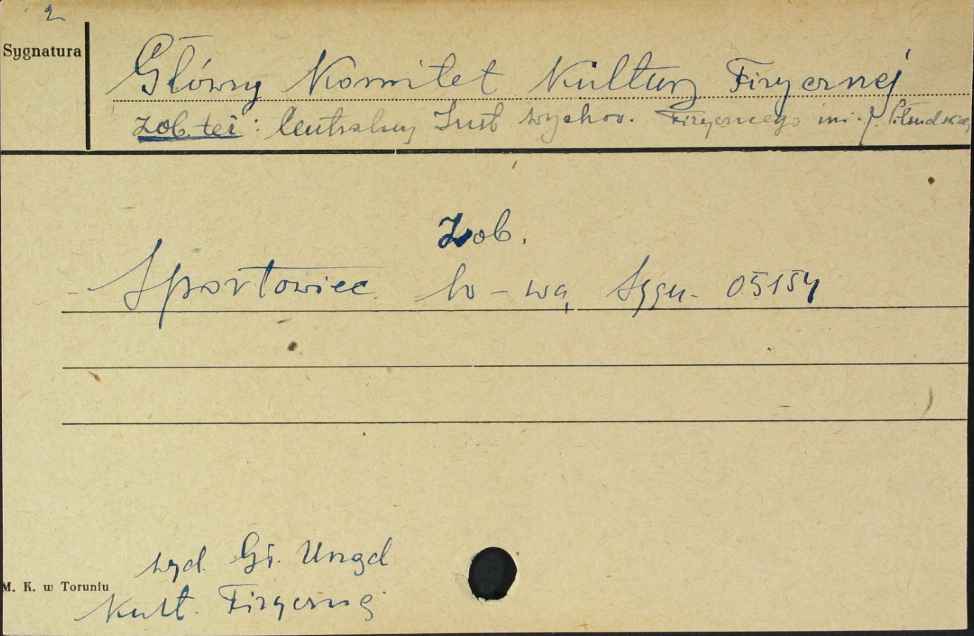 2
Sygnatura
Główny Komitet Kultury Fizycznej
zob. też: Centralny Inst Wychow. Fizycznego im. J. Piłsudskiego
Zob.
Sportowiec W-wa, Sygn. 05154
wyd. Gł. Urząd
M. K. w Toruniu
Kult. Fizycznej